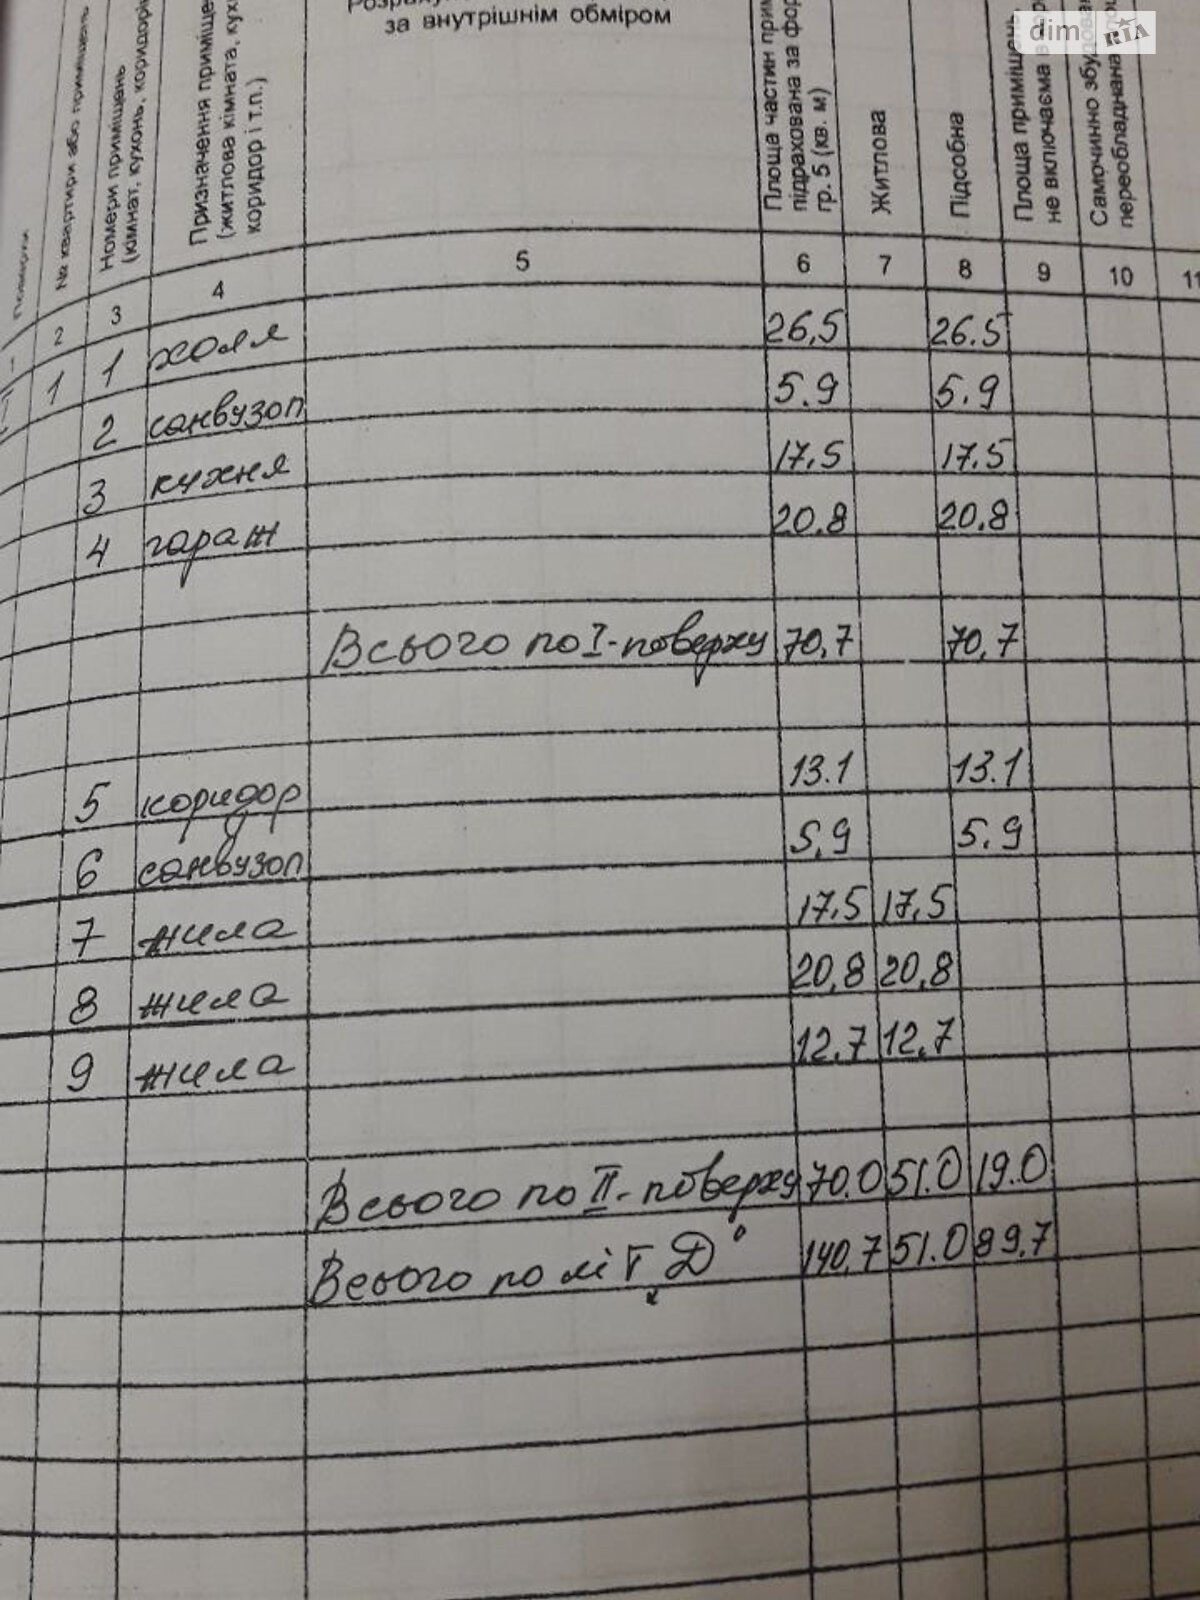 dim RIA
за внутрішнім обміром
Поверхи
№ квартири або приміщень
Номери приміщень
(кімнат, кухонь, коридорів
Призначення приміщень
(житлова кімната, кухня
коридор і т.п.)
Площа частин прим
підрахована за фор
гр. 5 (кв. м)
Житлова
Підсобна
Площа приміщень
не включаєма в
Самочинно збудован
переобладнана
2 3 4 5 6 7 8 9 10 11
1 1 холл 26,5 26.5
2 санвузол 5.9 5.9
3 кухня 17.5 17.5
4 гараж 20.8 20.8
Всього по І-поверху 70,7 70,7
5 коридор 13.1 13.1
6 санвузол 5,9 5.9
7 жила 17,5 17,5
8 жила 20,8 20,8
9 жила 12.7 12,7
Всього по ІІ-поверху 70.0 51.0 19.0
Всього по літ Д 140,7 51.0 89,7